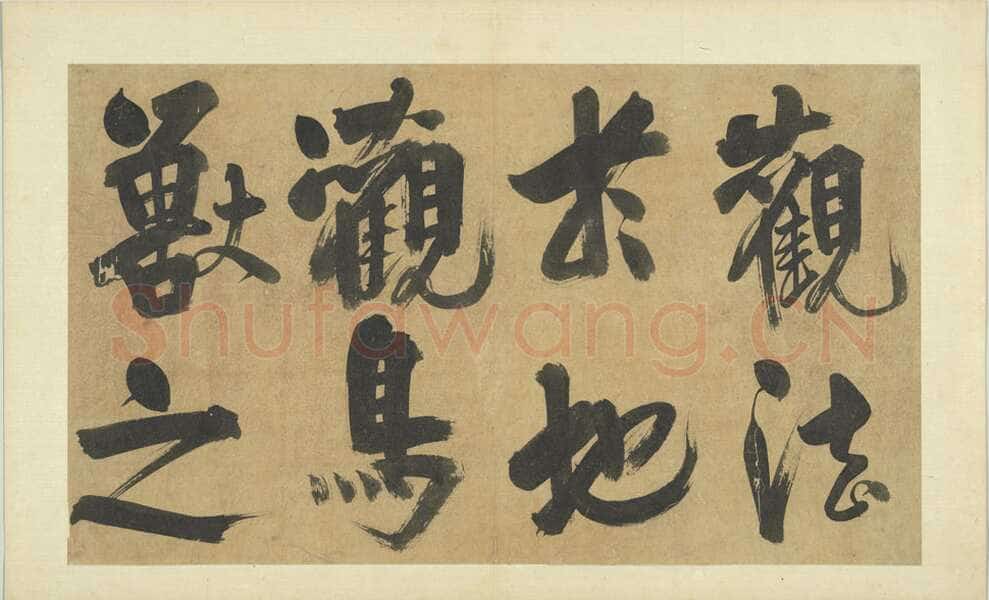 觀法
於地
觀鳥
獸之
Shufawang.CN